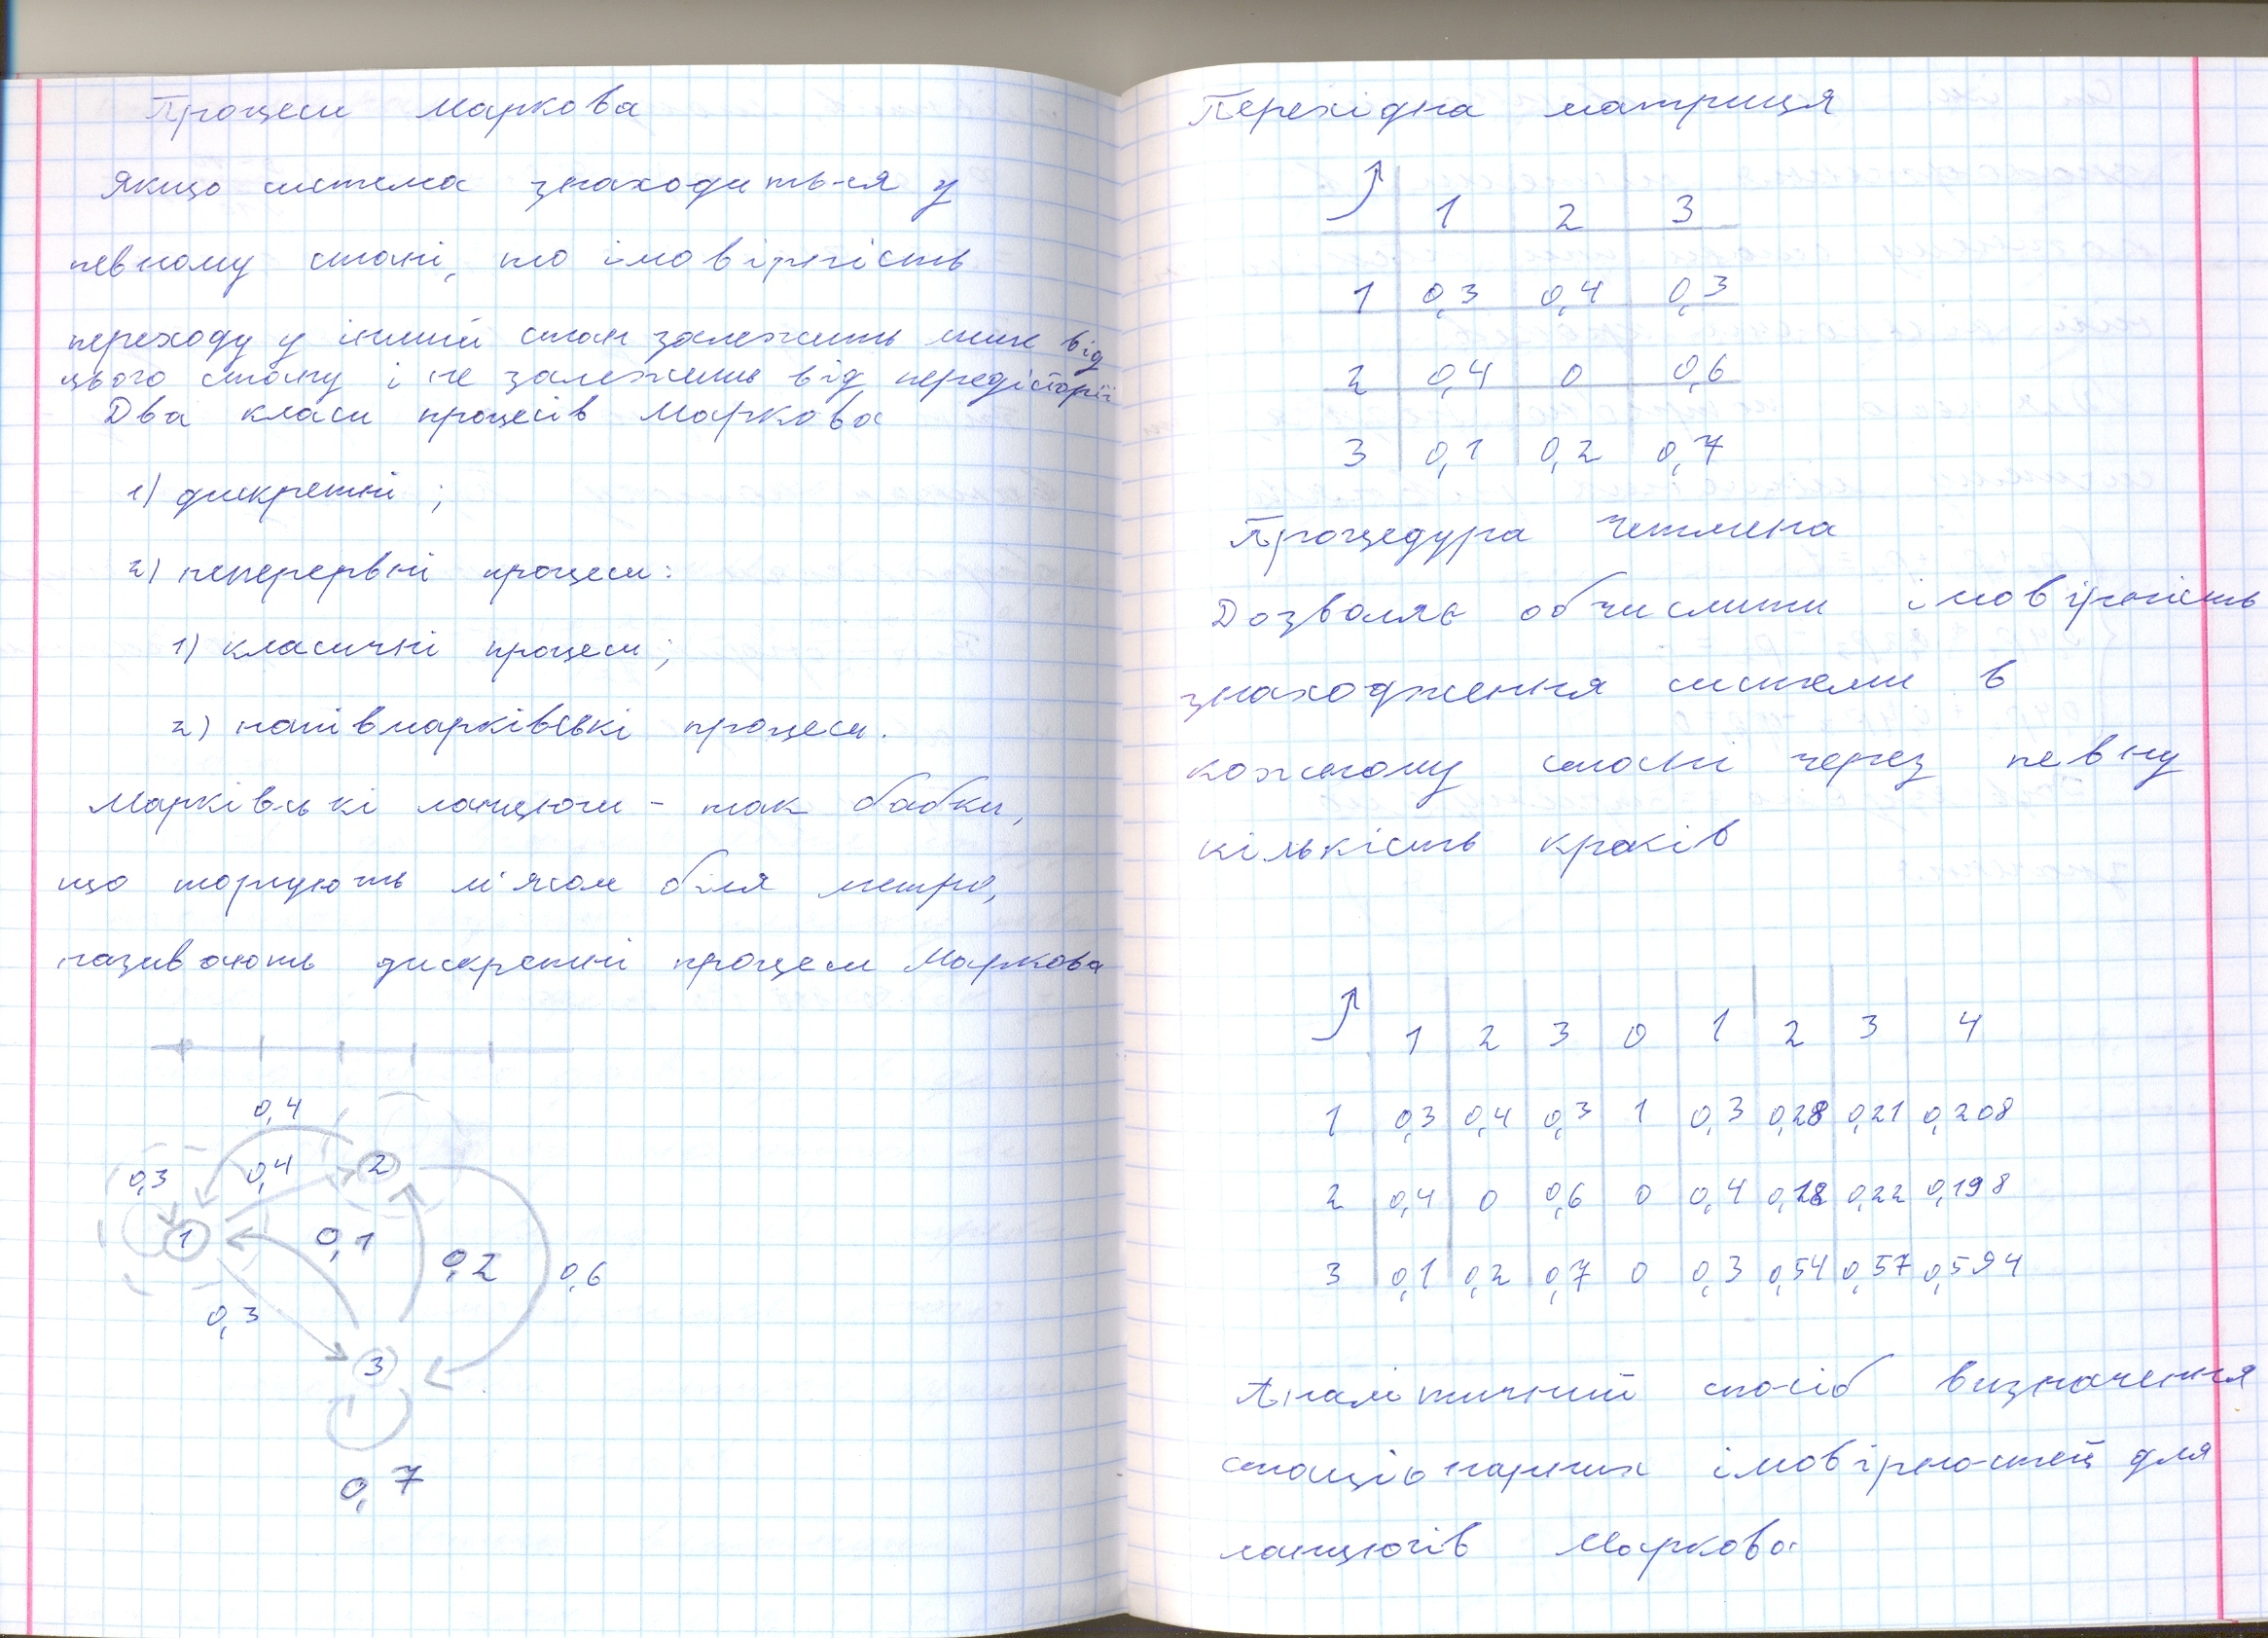 Процеси Маркова
Якщо система знаходиться у
певному стані, то імовірність
переходу у інший стан залежить лише від
цього стану і не залежить від передісторії
Два класи процесів Маркова
1) дискретні ;
2) неперервні процеси:
1) класичні процеси;
2) напівмарківські процеси.
Марківські ланцюги - так бабки,
що торгують м'ясом біля метро,
називають дискретні процеси Маркова
0,4
0,3 0,4 2
1 0,1 0,2 0,6
0,3
3
0,7
Перехідна матриця
1 2 3
1 0,3 0,4 0,3
2 0,4 0 0,6
3 0,1 0,2 0,7
Процедура Четмена
Дозволяє обчислити імовірність
знаходження системи в
кожному стані через певну
кількість кроків
1 2 3 0 1 2 3 4
1 0,3 0,4 0,3 1 0,3 0,28 0,21 0,208
2 0,4 0 0,6 0 0,4 0,18 0,22 0,198
3 0,1 0,2 0,7 0 0,3 0,54 0,57 0,594
Аналітичний спосіб визначення
стаціонарних імовірностей для
ланцюгів Маркова